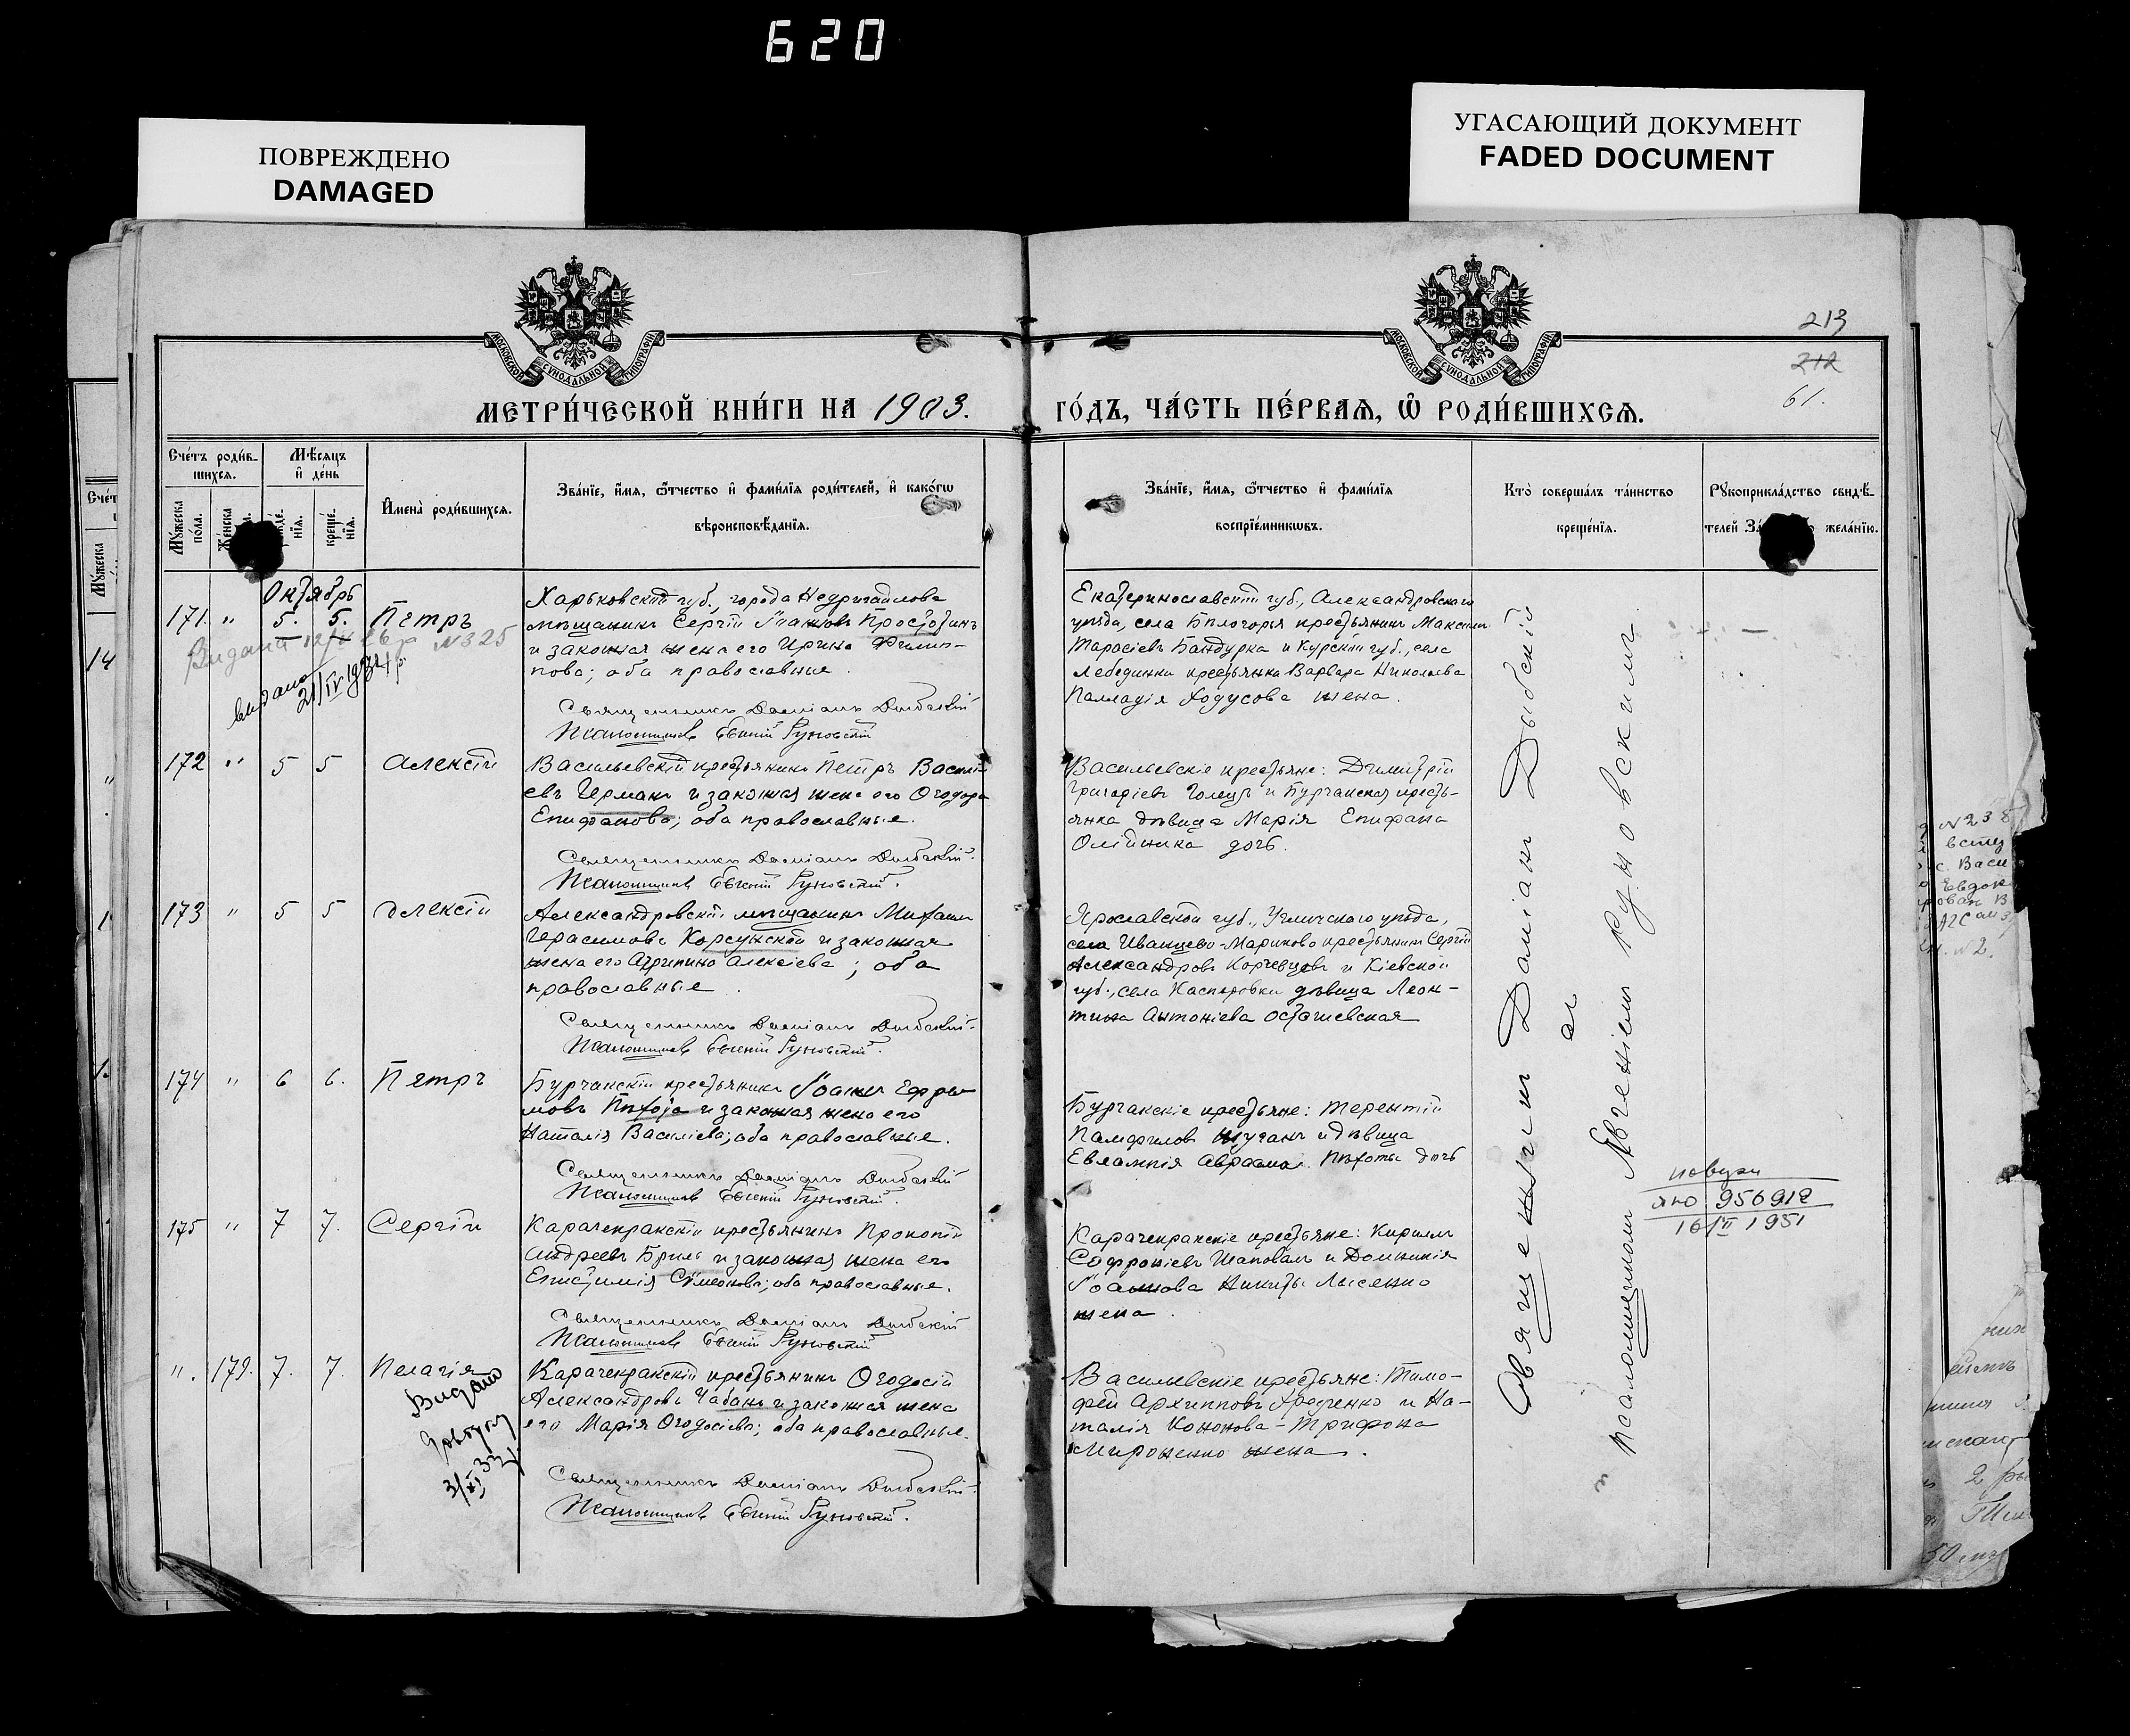 620
ПОВРЕЖДЕНО
DAMAGED
УГАСАЮЩИЙ ДОКУМЕНТ
FADED DOCUMENT
МОСКОВСКОЙ СѴНОДАЛЬНОЙ ТИПОГРАФІИ
МОСКОВСКОЙ СѴНОДАЛЬНОЙ ТИПОГРАФІИ
213
212
61.
МЕТРИ́ЧЕСКОЙ КНИ́ГИ НА 1903.
ГО́ДЪ, ЧА́СТЬ ПЕ́РВАЯ, Ѿ РОДИ́ВШИХСЯ.
Сче́тъ роди́в-
шихся.
Мѣ́сяцъ
и де́нь
Му́жеска
по́ла.
Же́нска
креще́-
нія.
Имена̀ роди́вшихся.
Зва́ніе, и́мя, ѻ́тчество и фами́лія роди́телей, и како́гѡ
вѣроисповѣ́данія.
Зва́ніе, и́мя, ѻ́тчество и фами́лія
воспріе́мникѡвъ.
Кто̀ соверша́лъ та́инство
креще́нія.
Рукоприкла́дство свидѣ́-
телей жела́нію.
Октябрь
171. " 5. 5. Петръ
Харьковской губ., города Недригайлова
мѣщанинъ Сергій Іоановъ Простотинъ
и законная жена его Ирина Филип-
пова; оба православные.
Священникъ Даміанъ Дыбскій
Псаломщикъ Евгеній Руновскій
Видана №325
видано
21/IV 1934 р.
Екатеринославской губ., Александровского
уѣзда, села Бѣлогорья крестьянинъ Максимъ
Тарасіевъ Бандурка и Курской губ., села
Лебединки крестьянка Варвара Николаева
Палладія Ходусова жена.
172 " 5 5 Алексій
Васильевскій крестьянинъ Петръ Васил-
евъ Германъ и законная жена его Ѳеодора
Епифанова; оба православные.
Священникъ Даміанъ Дыбскій.
Псаломщикъ Евгеній Руновскій.
Васильевскіе крестьяне: Димитрій
Григоріевъ Голецъ и Бурчакская кресть-
янка дѣвица Марія Епифана
Олійника дочь.
173 " 5 5 Алексій
Александровскій мѣщанинъ Михаилъ
Герасимовъ Корсунской и законная
жена его Агрипина Алексіева; оба
православные.
Священникъ Даміанъ Дыбскій.
Псаломщикъ Евгеній Руновскій.
Ярославской губ., Угличского уѣзда,
села Иванцево-Мариново крестьянинъ Сергій
Александровъ Корчевцевъ и Кіевской
губ., села Касперовки дѣвица Леон-
тина Антоніева Осташевская
174 " 6 6. Петръ
Бурчакскій крестьянинъ Іоанъ Ефре-
мовъ Пѣхота и законная жена его
Наталія Василіева; оба православные.
Священникъ Даміанъ Дыбскій
Псаломщикъ Евгеній Руновскій.
Бурчакскіе крестьяне: Терентій
Памфиловъ Шуганъ и дѣвица
Евлампія Авраама Пѣхоты дочь
175 " 7 7. Сергій
Карачекракскій крестьянинъ Прокопій
Андреевъ Бриль и законная жена его
Епистимія Симеонова; оба православные.
Священникъ Даміанъ Дыбскій
Псаломщикъ Евгеній Руновскій
Карачекракскіе крестьяне: Кириллъ
Софроніевъ Шаповалъ и Домникія
Іоаннова Никиты Лысенко
жена.
". 179. 7. 7. Пелагія
Карачекракскій крестьянинъ Ѳеодосій
Александровъ Чабанъ и законная жена
его Марія Ѳеодосіева; оба православные.
Священникъ Даміанъ Дыбскій.
Псаломщикъ Евгеній Руновскій.
Видано
3/XI 33
Васильевскіе крестьяне: Тимо-
фей Архипповъ Храченко и На-
талія Кононова-Трифона
Мироненко жена.
Священникъ Даміанъ Дыбскій
съ
псаломщикомъ Евгеніемъ Руновскимъ
ЯЮ 956912
16/VI 1951
14